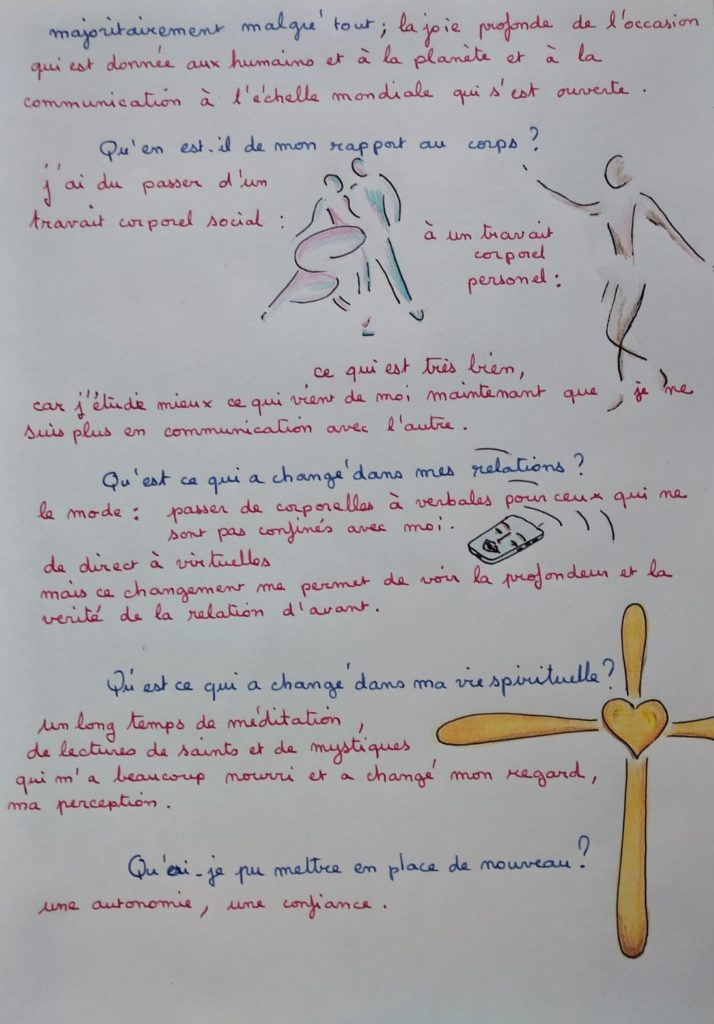 majoritairement malgré tout ; la joie profonde de l'occasion
qui est donnée aux humains et à la planète et à la
communication à l'échelle mondiale qui s'est ouverte .
Qu'en est-il de mon rapport au corps ?
j'ai du passer d'un
travait corporel social :
à un travait
corporel
personel :
ce qui est très bien,
car j'étudie mieux ce qui vient de moi maintenant que je ne
suis plus en communication avec l'autre .
Qu'est ce qui a changé dans mes relations ?
le mode : passer de corporelles à verbales pour ceux qui ne
sont pas confinés avec moi .
de direct à virtuelles
mais ce changement me permet de voir la profondeur et la
verité de la relation d'avant .
Qu'est ce qui a changé dans ma vie spirituelle ?
un long temps de méditation ,
de lectures de saints et de mystiques
qui m'a beaucoup nourri et a changé mon regard ,
ma perception .
Qu'ai-je pu mettre en place de nouveau ?
une autonomie , une confiance .